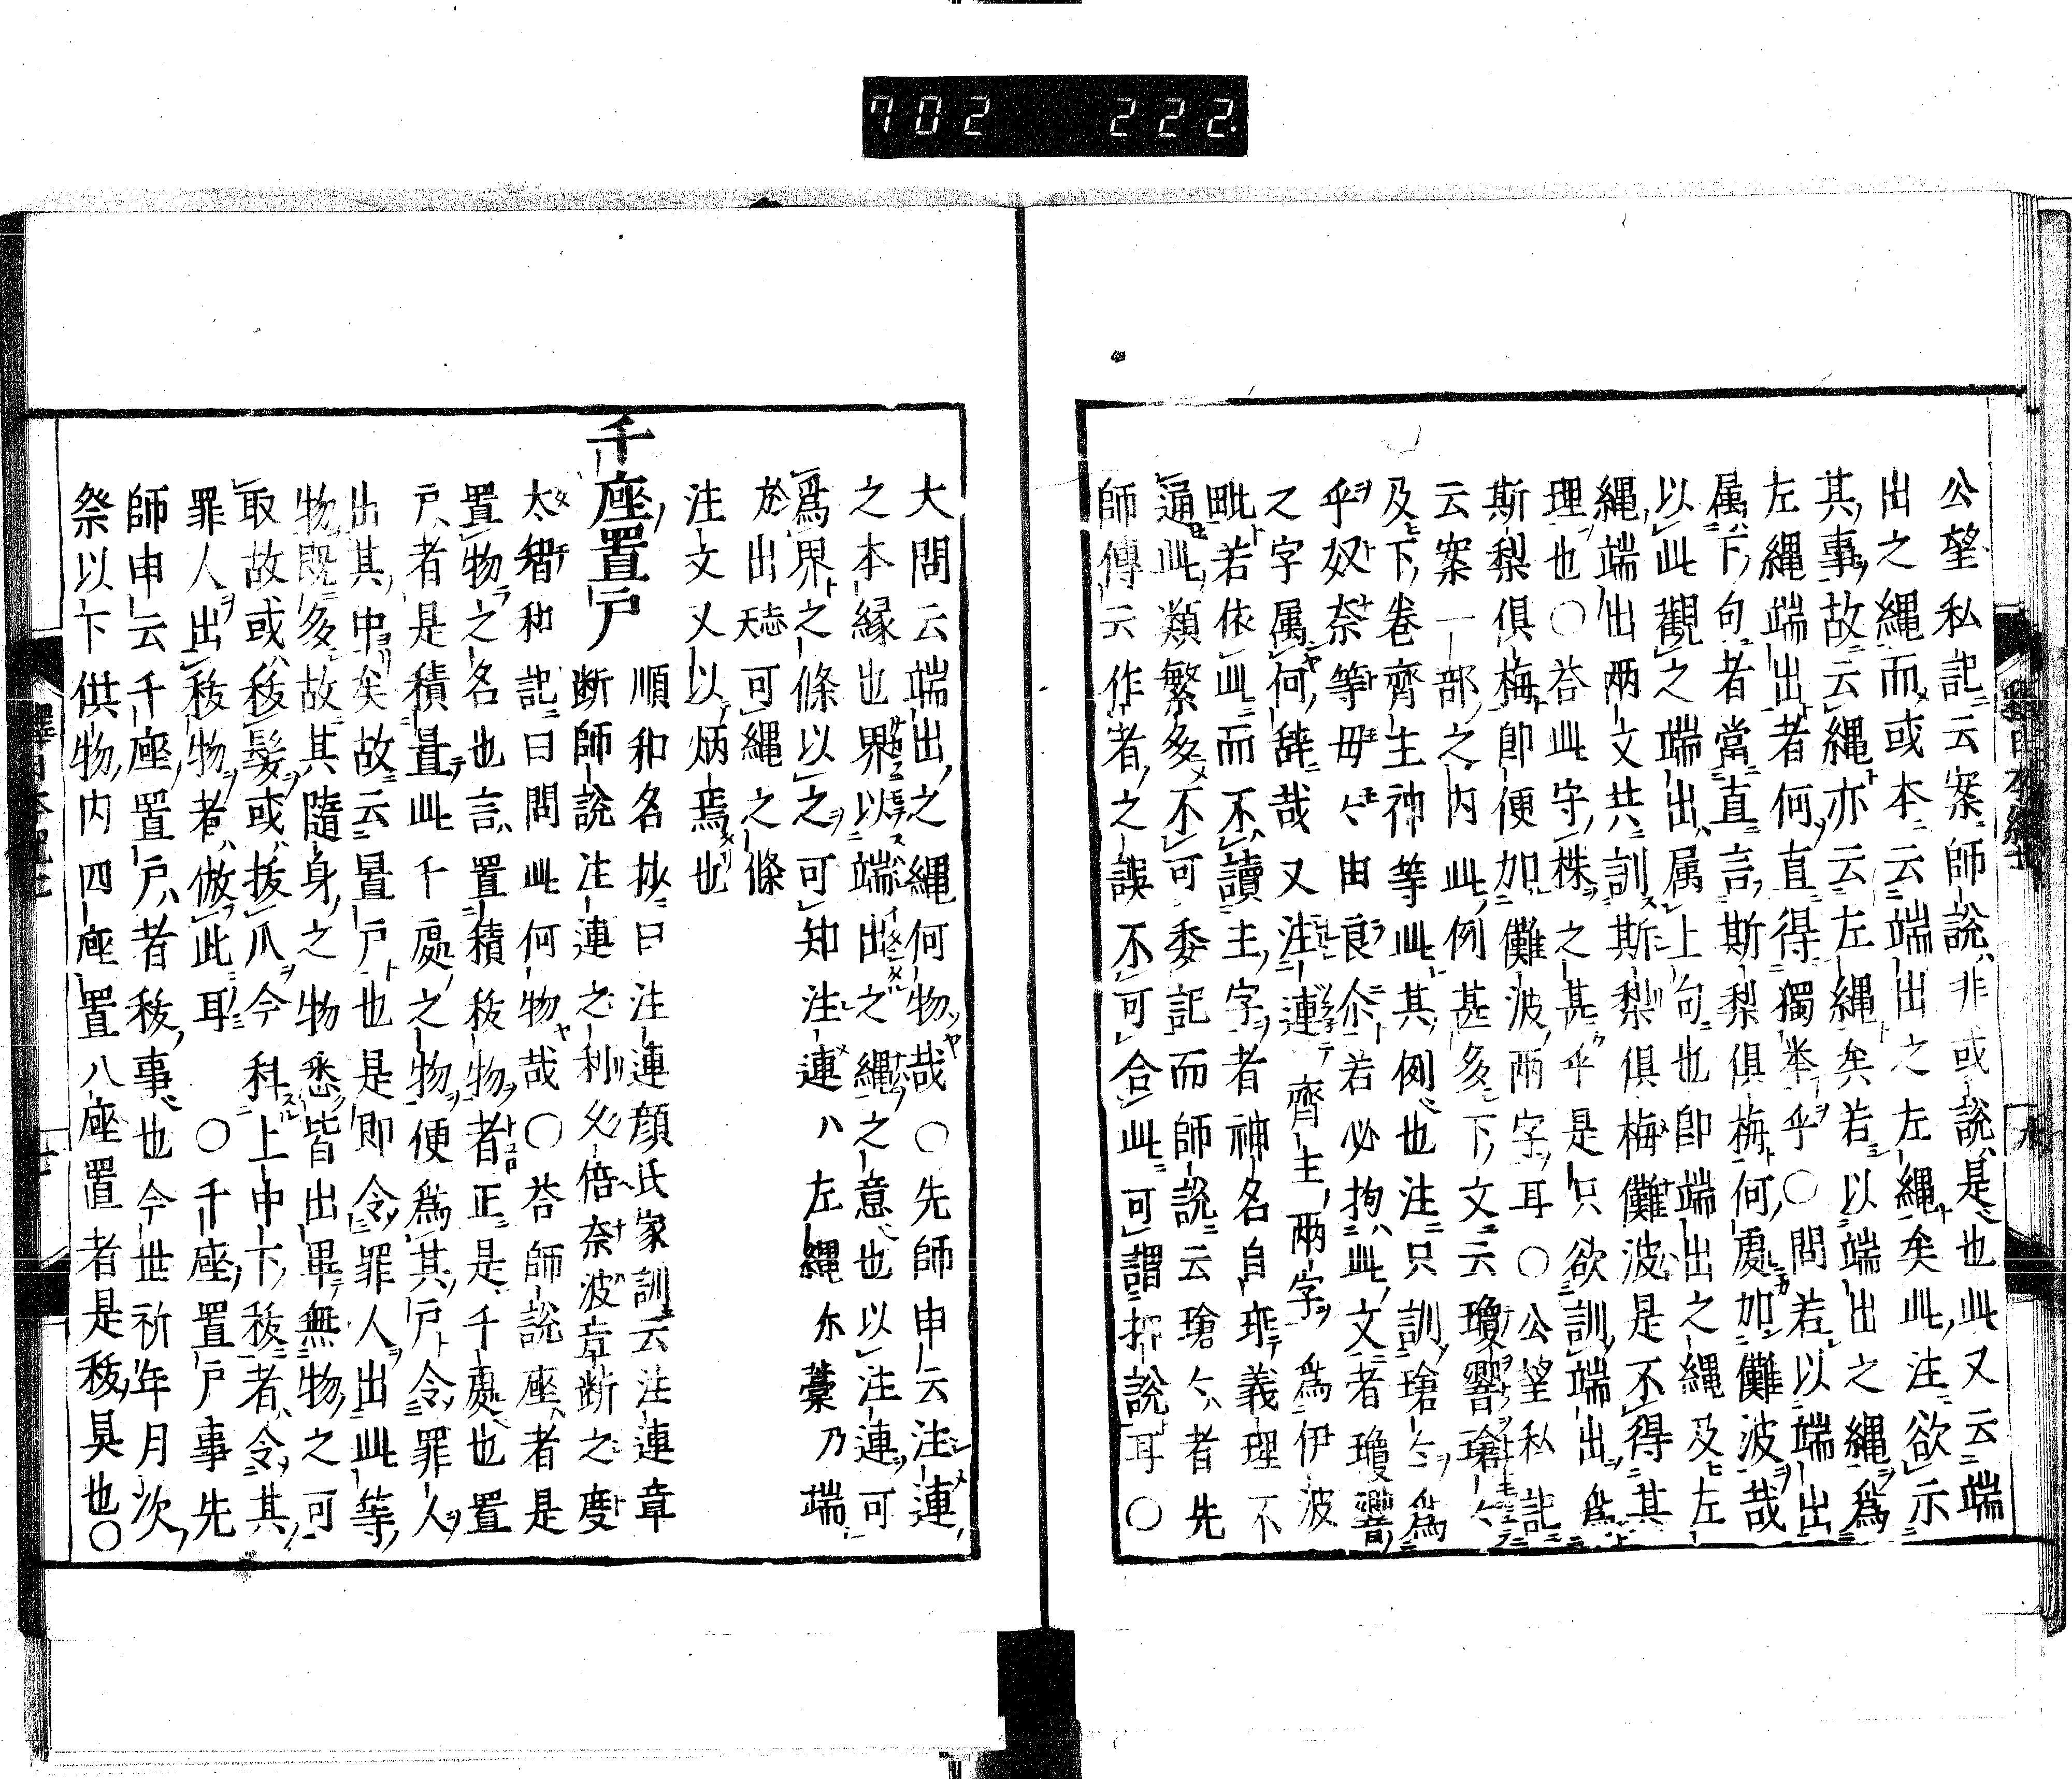 702 222.
公望私記云案師說非或說是也此又云端
出之縄而或本云端出之左縄矣此注欲示
其事故云縄亦云左縄矣若以端出之縄爲
左縄端出者何直得獨挙乎○問若以端出
属下句者當直言斯梨俱梅何處加儺波哉
以此觀之端出属上句也即端出之縄及左
縄端出兩文共訓斯梨俱梅儺波是不得其
理也○荅此守株之甚乎是只欲訓端出爲
斯梨俱梅即便加儺波兩字耳○公望私記
云案一部之内此例甚多下文云瓊響瑲々
及下卷齊生神等此其例也注只訓瑲々爲
乎奴奈等母々由良尓若必拘此文者瓊響
之字属何辞哉又注連齊主兩字爲伊波
毗若依此而不讀主字者神名自乖義理不
通此類繁多不可委記而師說云瑲々者先
師傳云作者之誤不可合此可謂抑說耳○
大問云端出之縄何物哉○先師申云注連
之本縁也界以端出之縄之意也以注連可
爲界之條以之可知注連八左縄尓藁乃端
於出天志可縄之條
注文又以炳焉也
千座置戸
順和名抄曰注連顔氏家訓云注連章
断師說注連之利久倍奈波章断之度
太智和記曰問此何物哉○荅師說座者是
置物之名也言置積秡物者正是千處也置
戸者是積置此千處之物便爲其戸令罪人
出其中矣故云置戸也是即令罪人出此等
物既多故其隨身之物悉皆出畢無物之可
取故或秡髪或拔爪今科上中下秡者令其
罪人出秡物者倣此耳○千座置戸事先
師申云千座置戸者秡事也今世祈年月次
祭以下供物内四座置八座置者是秡具也○